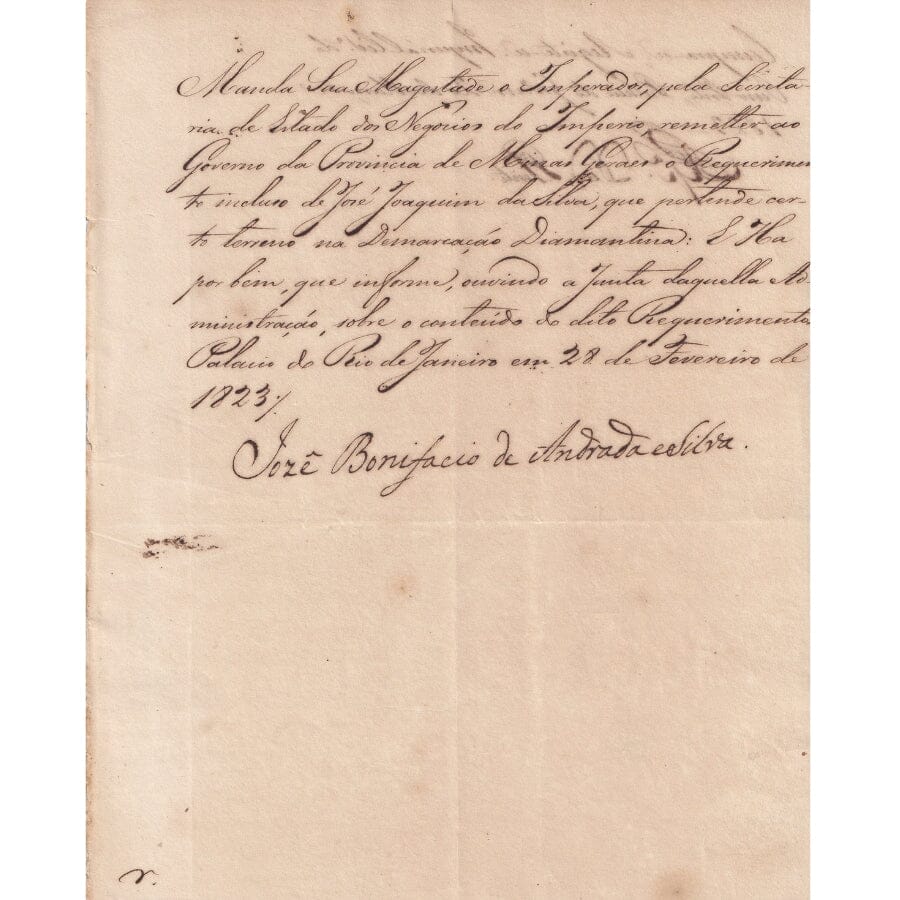 Manda Sua Magestade o Imperador, pela Secreta-
ria de Estado dos Negocios do Imperio remetter ao
Governo da Provincia de Minas Geraes o Requerimen
to incluso de José Joaquim da Silva, que pertende cer-
to terreno na Demarcação Diamantina: E Ha
por bem, que informe, ouvindo a Junta daquella Ad-
ministração, sobre o conteúdo do dito Requerimento,
Palacio do Rio de Janeiro em 28 de Fevereiro de
1823/
Jozê Bonifacio de Andrada e Silva.